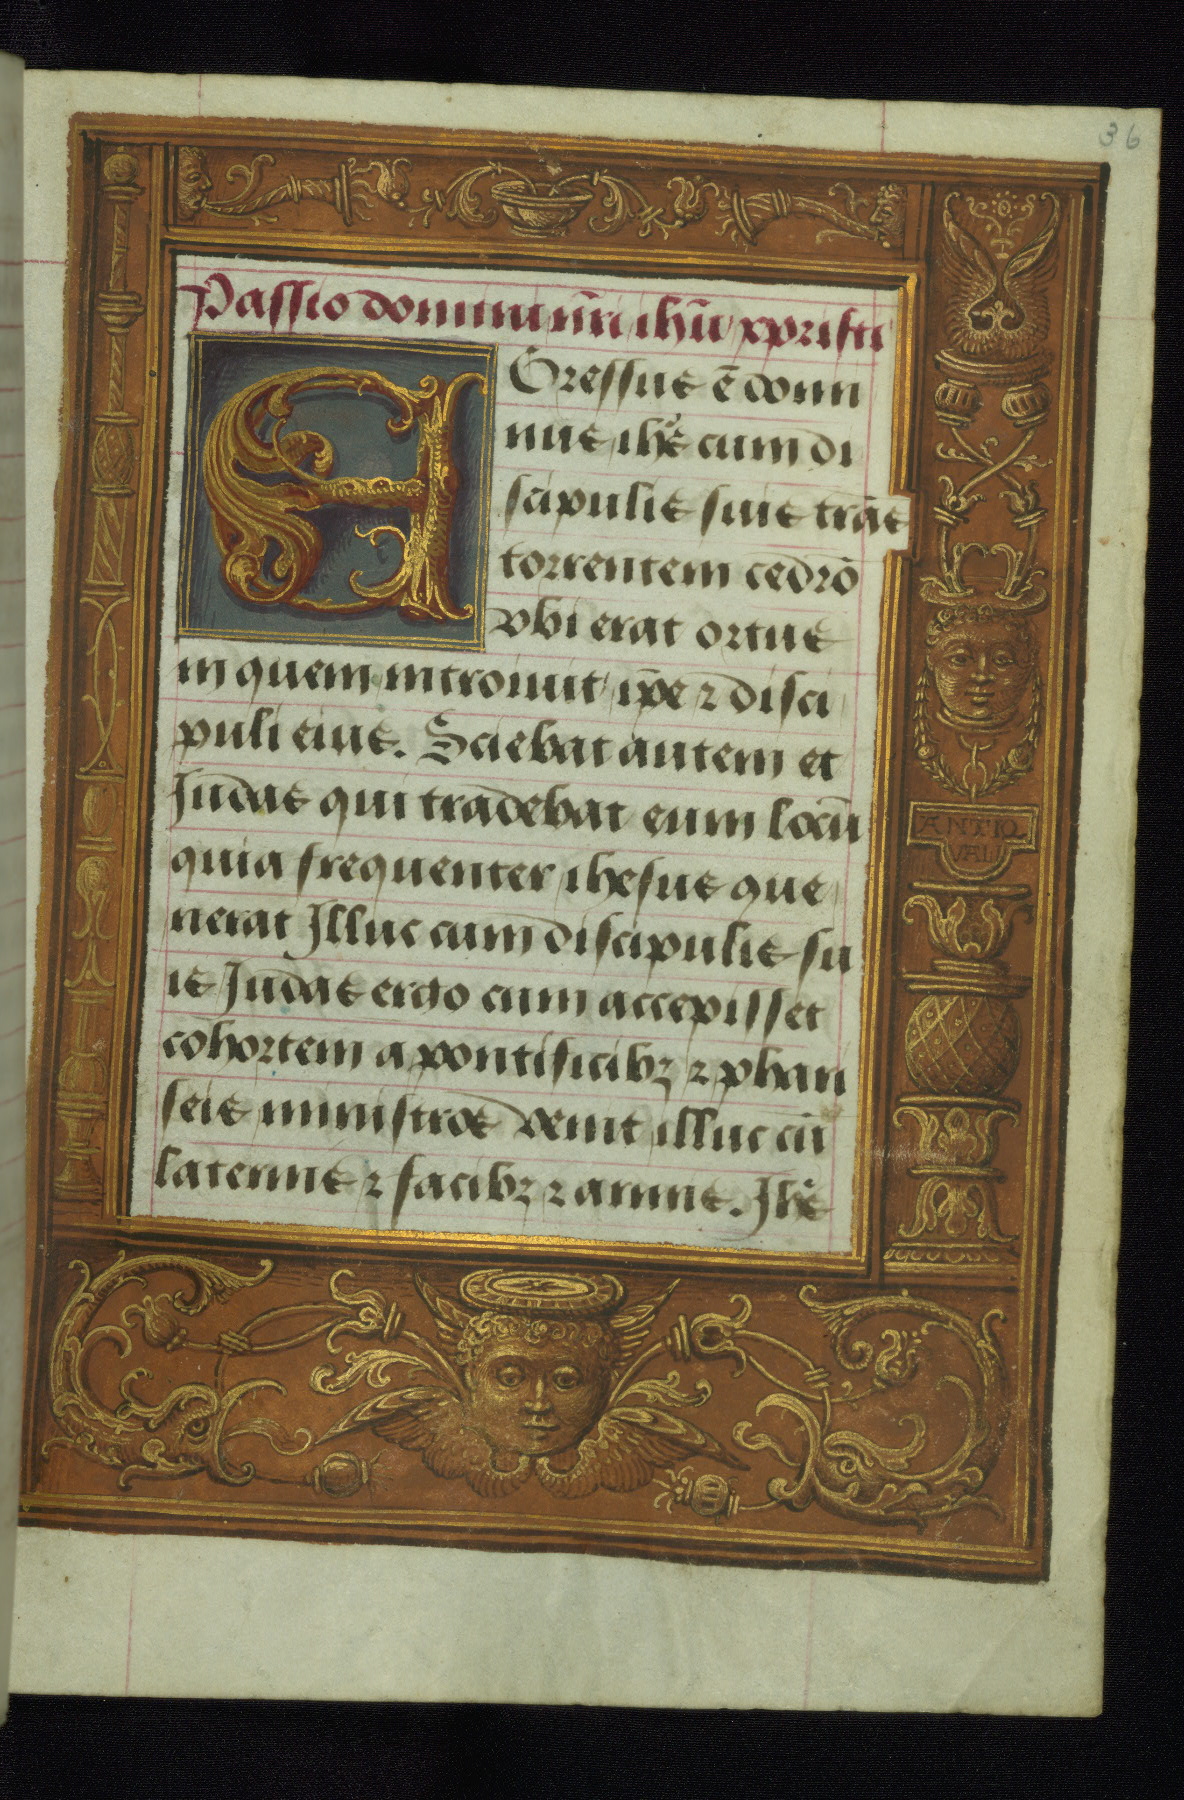 36
Passio domini nr̄i ihū xpristi
EGressus ē domi
nus ihс̄ cum di
scipulis suis trās
torrentem cedrō
vbi erat ortus
in quem introiuit ip̄e ꝛ disci
puli eius. Sciebat autem et
Judas qui tradebat eum locū
quia frequenter ihesus que
nerat Illuc cum discipulis su
is Judas ergo cum accepisset
cohortem a pontificibꝫ ꝛ phari
seis ministros venit illuc cū
laternis ꝛ facibꝫ ꝛ armis. Jhс̄
ANTIQ
VALI